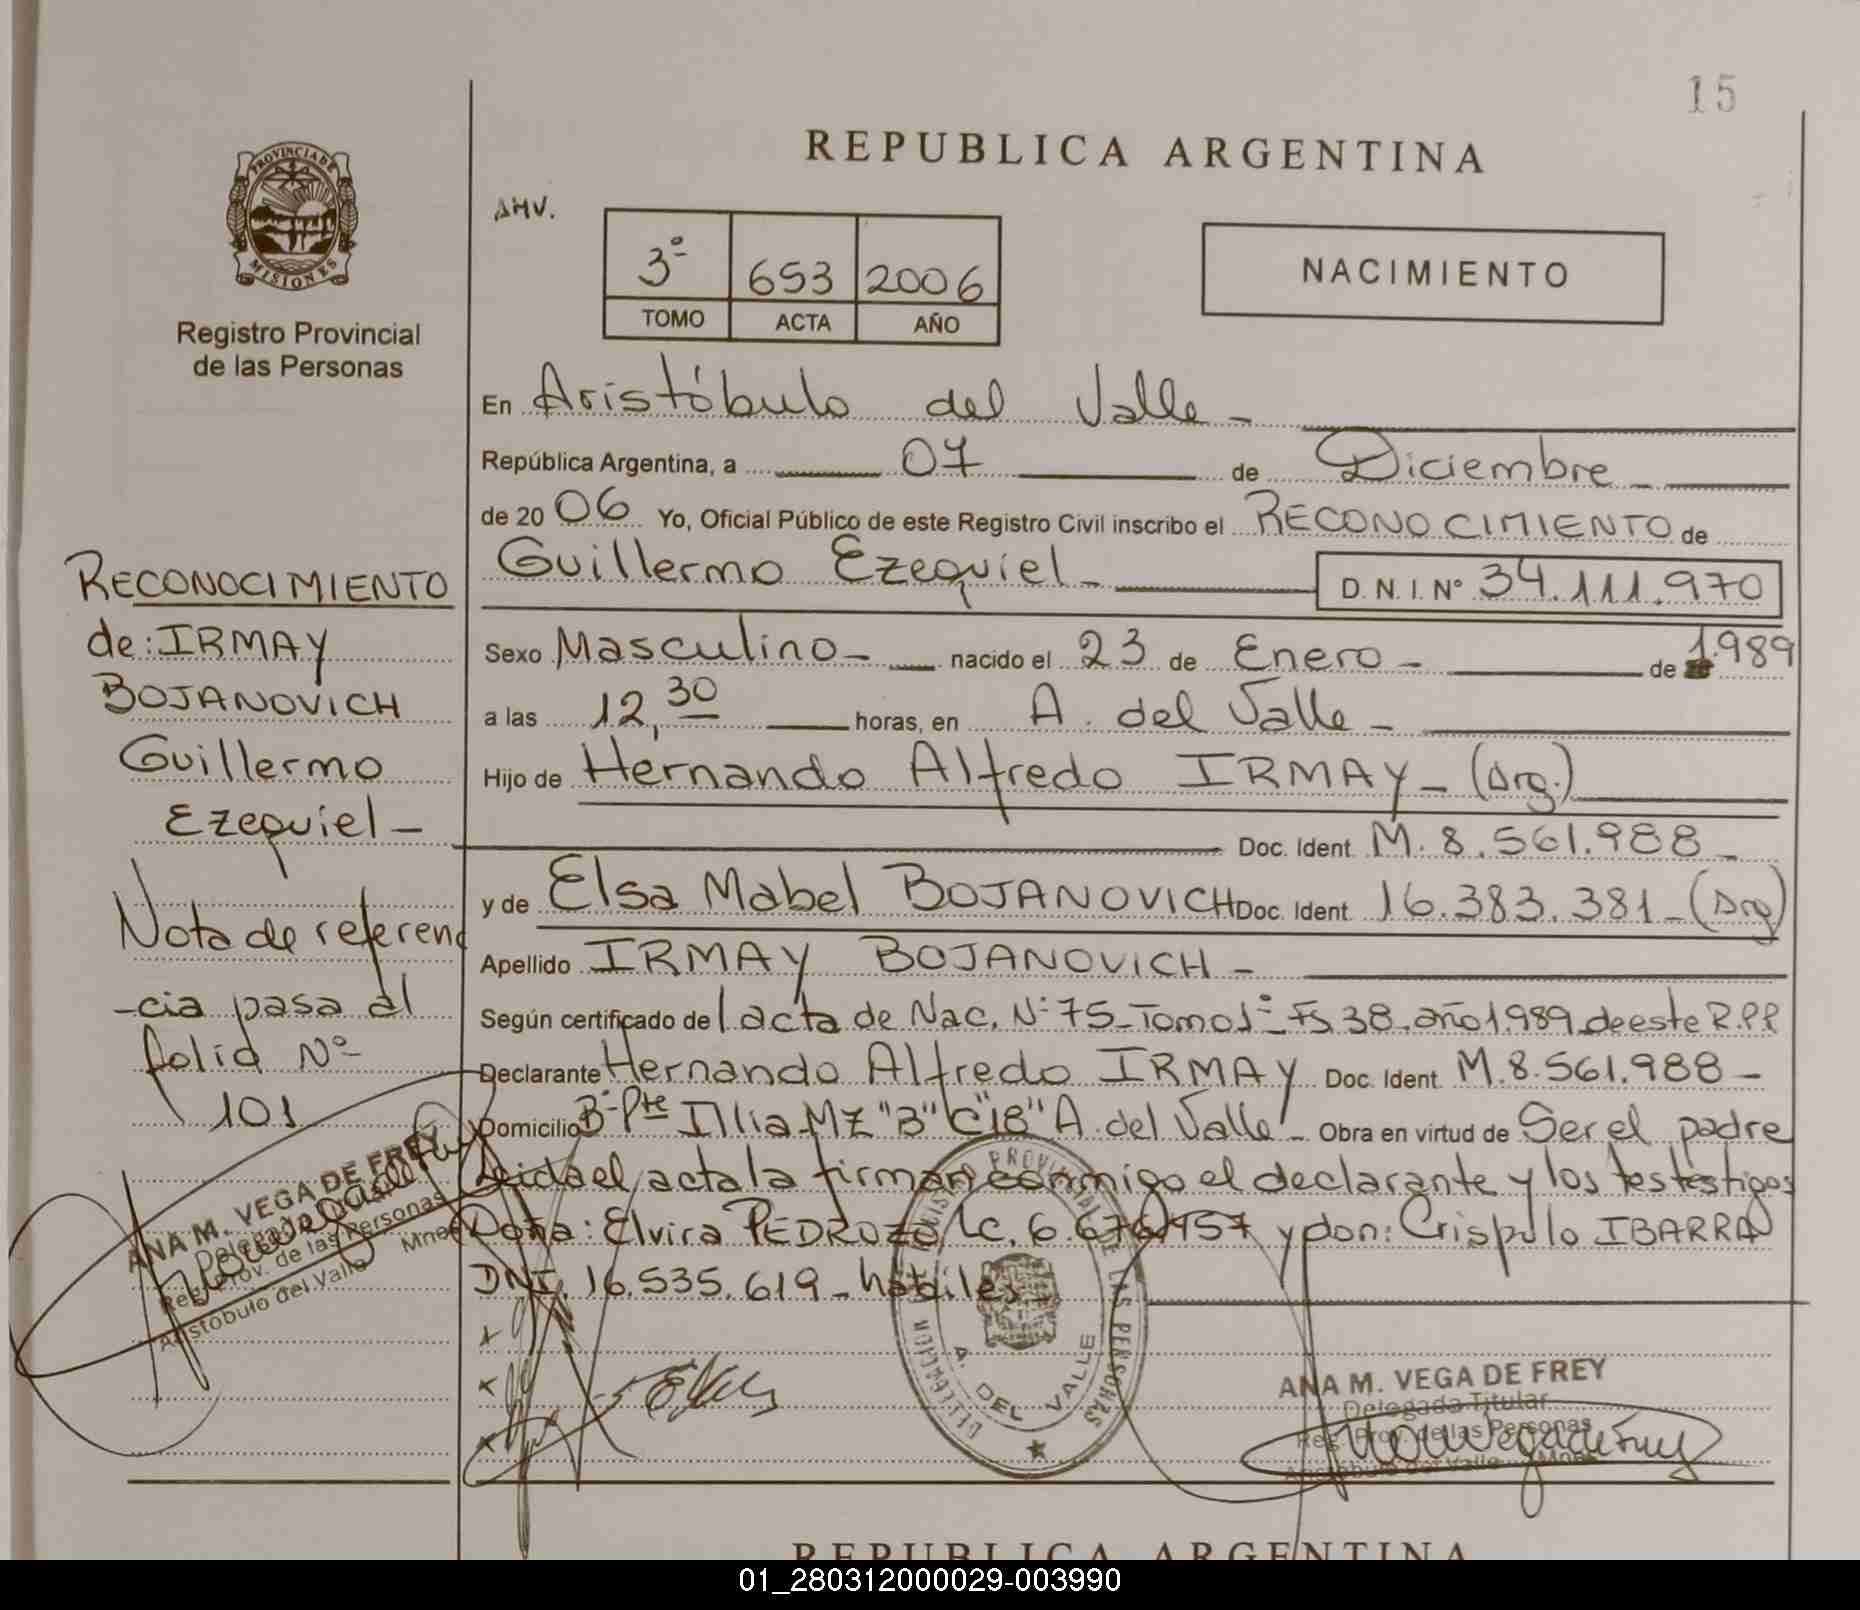 15
REPUBLICA ARGENTINA
PROVINCIA DE
MISIONES
Registro Provincial
de las Personas
AHV.
3º 653 2006
TOMO ACTA AÑO
NACIMIENTO
En Aristóbulo del Valle -
República Argentina, a 07 de Diciembre -
de 20 06 Yo, Oficial Público de este Registro Civil inscribo el RECONOCIMIENTO de
Guillermo Ezequiel - D. N. I. Nº 34.111.970
Sexo Masculino - nacido el 23 de Enero - de 1.989
a las 12,30 horas, en A. del Valle -
Hijo de Hernando Alfredo IRMAY - (Arg.)
Doc. Ident. M. 8.561.988 -
y de Elsa Mabel BOJANOVICH Doc. Ident. 16.383.381 - (Arg)
Apellido IRMAY BOJANOVICH -
Según certificado de l acta de Nac. Nº 75 - Tomo 1º - Fs 38. año 1.989 de este R.P.P
Declarante Hernando Alfredo IRMAY Doc. Ident. M.8.561.988 -
Domicilio Bº Pte Illia Mz "B" C "18" A. del Valle - Obra en virtud de Ser el padre
Leida el acta la firman conmigo el declarante y los testestigos
Doña: Elvira PEDROZO LC. 6.676.957 y don: Crispulo IBARRA
DNI. 16.535.619 - habiles -
RECONOCIMIENTO
de: IRMAY
BOJANOVICH
Guillermo
Ezequiel -
Nota de referen
-cia pasa al
folio Nº
101
ANA M. VEGA DE FREY
Delegada Titular
Reg. Prov. de las Personas
Aristóbulo del Valle Mnes
DELEGACION REGISTRO PROVINCIAL DE LAS PERSONAS
A. DEL VALLE
ANA M. VEGA DE FREY
Delegada Titular
Reg. Prov. de las Personas
Aristóbulo del Valle - Mnes
REPUBLICA ARGENTINA
01_280312000029-003990